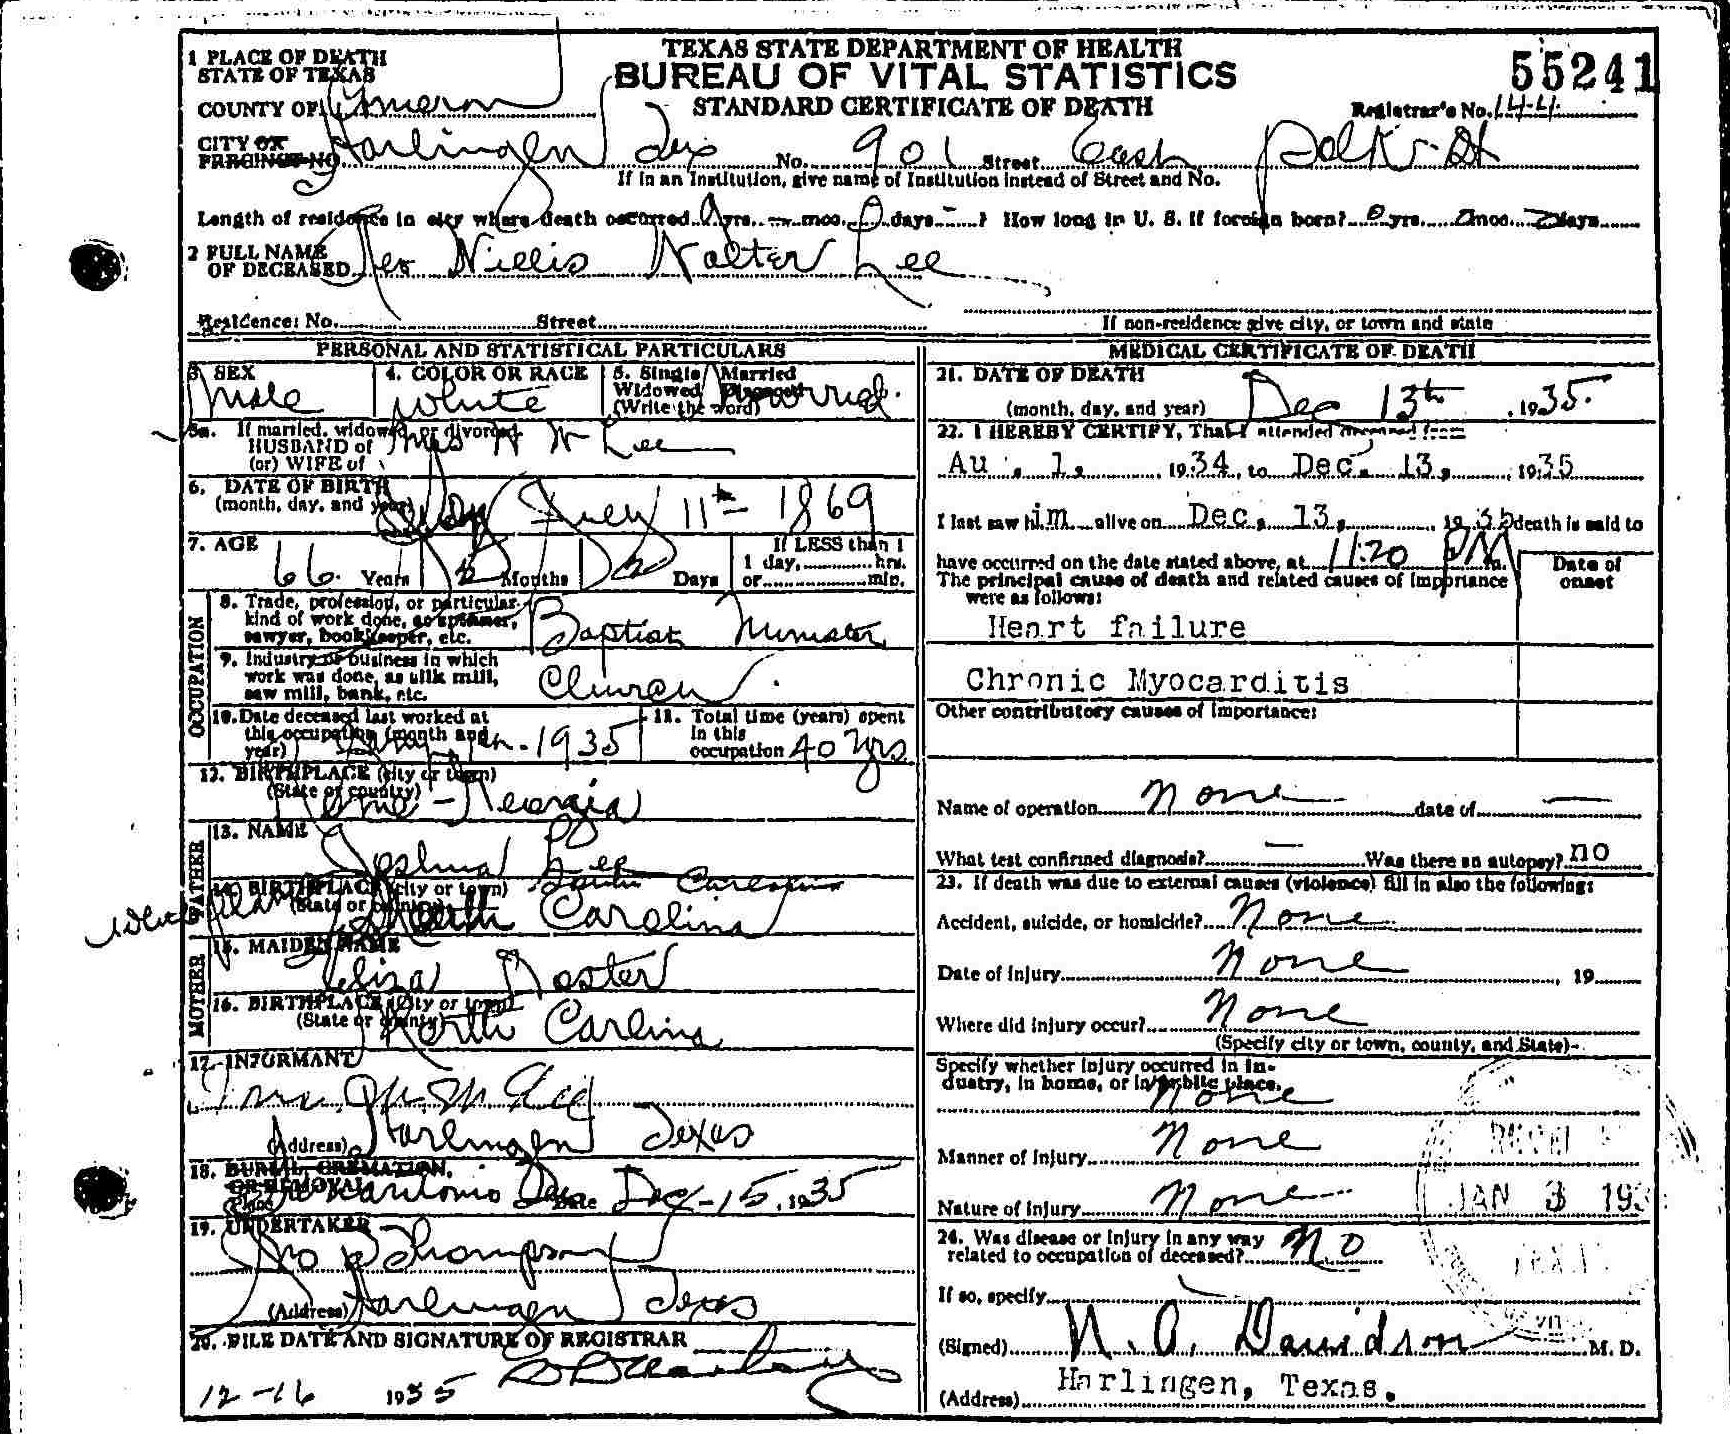 TEXAS STATE DEPARTMENT OF HEALTH
BUREAU OF VITAL STATISTICS
STANDARD CERTIFICATE OF DEATH
55241
Registrar's No. 144
1 PLACE OF DEATH
STATE OF TEXAS
COUNTY OF Cameron
CITY OR PRECINCT NO. Harlingen Tex No. 901 Street East Polk St
If in an Institution, give name of Institution instead of Street and No.
Length of residence in city where death occurred yrs. mos. days ? How long in U. S. if foreign born? yrs. mos. days
2 FULL NAME OF DECEASED Rev Willis Walter Lee
Residence: No. Street
If non-residence give city, or town and state
PERSONAL AND STATISTICAL PARTICULARS
3 SEX Male
4. COLOR OR RACE White
5. Single Married Widowed Divorced (Write the word) Married
5a. If married, widowed, or divorced HUSBAND of (or) WIFE of Mrs W W Lee
6. DATE OF BIRTH (month, day, and year) July 11th 1869
7. AGE 66 Years Months 2 Days
If LESS than 1 day, hrs. or min.
OCCUPATION
8. Trade, profession, or particular kind of work done, as spinner, sawyer, bookkeeper, etc. Baptist Minister
9. Industry or business in which work was done, as silk mill, saw mill, bank, etc. Church
10. Date deceased last worked at this occupation (month and year) 1935
11. Total time (years) spent in this occupation 40 yrs
12. BIRTHPLACE (city or town) (State or country) Rome - Georgia
FATHER
13. NAME Joshua Lee
14. BIRTHPLACE (city or town) (State or country) South Carolina
North Carolina
MOTHER
15. MAIDEN NAME Eliza
16. BIRTHPLACE (City or town) (State or county) North Carlina
17. INFORMANT
(Address) Harlingen Texas
18. BURIAL, CREMATION, OR REMOVAL
Place San Antonio Tex Date Dec - 15, 1935
19. UNDERTAKER
Jno Thompson
(Address) Harlingen Texas
20. FILE DATE AND SIGNATURE OF REGISTRAR
12-16 1935
MEDICAL CERTIFICATE OF DEATH
21. DATE OF DEATH
(month, day, and year) Dec 13th, 1935.
22. I HEREBY CERTIFY, That I attended deceased from
Au . 1, 1934, to Dec. 13, 1935
I last saw him alive on Dec. 13, 1935 death is said to
have occurred on the date stated above, at 11:20 PM m.
The principal cause of death and related causes of importance were as follows:
Date of onset
Heart failure
Chronic Myocarditis
Other contributory causes of importance:
Name of operation None date of —
What test confirmed diagnosis? — Was there an autopsy? no
23. If death was due to external causes (violence) fill in also the following:
Accident, suicide, or homicide? None
Date of injury None, 19
Where did injury occur? None
(Specify city or town, county, and State)
Specify whether injury occurred in industry, in home, or in public place.
None
Manner of injury None
Nature of injury None
24. Was disease or injury in any way related to occupation of deceased? No
If so, specify
(Signed) N. O. Davidson M. D.
(Address) Harlingen, Texas.
JAN 3 193